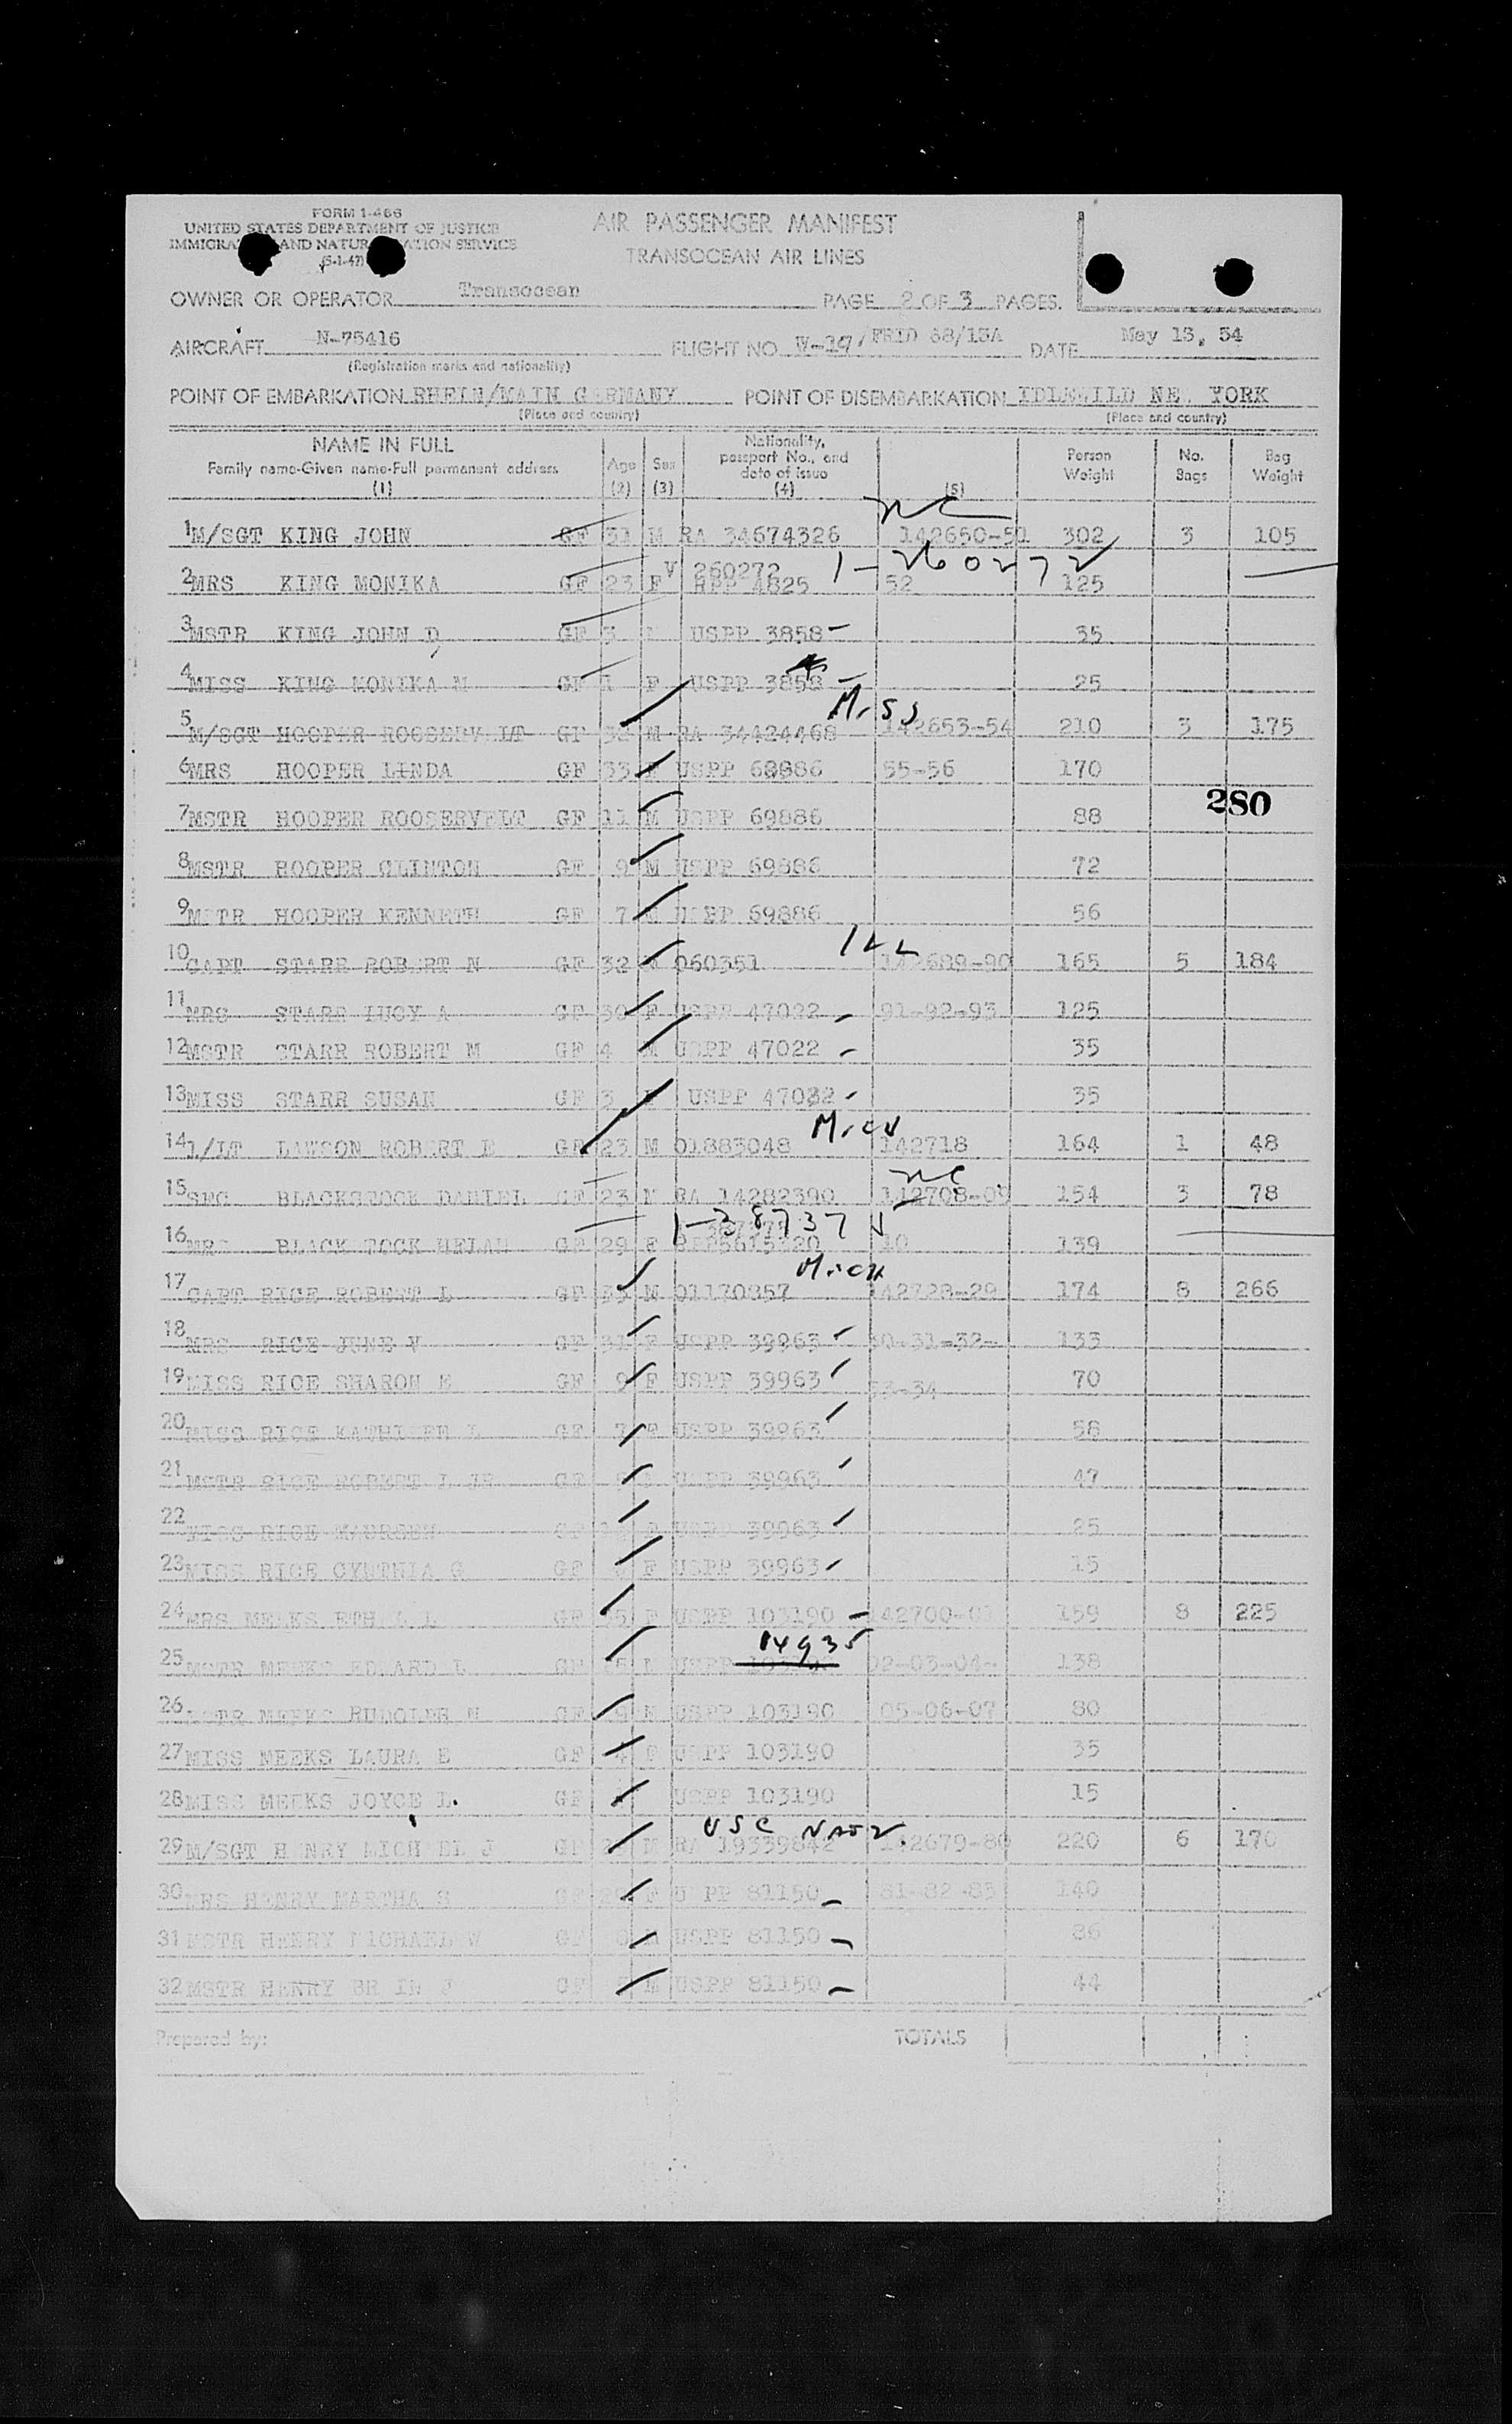 FORM 1-466
UNITED STATES DEPARTMENT OF JUSTICE
AND SERVICE
AIR PASSENGER MANIFEST
TRANSOCEAN AIR LINES
OWNER OR OPERATOR Transocean PAGE 2 OF 3 PAGES.
AIRCRAFT N-75416 FLIGHT NO. DATE May 13, 54
(Registration marks and nationality)
POINT OF EMBARKATION RHEIN/MAIN POINT OF DISEMBARKATION YORK
(Place and country) (Place and country)
NAME IN FULL Age Sex Nationality, passport No., and date of issue Person Weight No. Bags Bag Weight
Family name-Given name-Full permanent address
(1) (2) (3) (4) (5)
NC
1 M/SGT KING JOHN GF 31 M RA 34674326 142650-51 302 3 105
V 260272 1-260272
2 MRS KING MONIKA GF 23 F 4825 52 125
3 MSTR KING JOHN D GF 3 USPP 3858 35
4 MISS KING MONIKA M GF 1 F USPP 3858 25
Miss
5 M/SGT HOOPER GF M RA 34424468 142653-54 210 3 175
6 MRS HOOPER LINDA GF 33 USPP 55-56 170
280
7 MSTR HOOPER ROOSERVELT GF 11 M USPP 69886 88
8 MSTR HOOPER CLINTON GF 9 M USPP 69886 72
9 MSTR HOOPER KENNETH GF 7 USPP 69886 56
ILL
10 CAPT STARR ROBERT N GF 32 060351 142689-90 165 5 184
11 MRS STARR LUCY A GF 30 F USPP 47022 91-92-93 125
12 MSTR STARR ROBERT M GF 4 M USPP 47022 35
13 MISS STARR SUSAN GF 3 USPP 35
Mich
14 1/LT LAWSON ROBERT E GF 23 M 01883048 142718 164 1 48
NC
15 SFC BLACKSTOCK DANIEL GF 23 M RA 14282390 142708-09 154 3 78
16 MRS GF 29 F 10 139
Mich
17 CAPT RICE ROBERT L GF 33 M 01170857 142728-29 174 8 266
18 MRS RICE JUNE V GF 31 F USPP 39963 30-31-32- 133
19 MISS RICE SHARON E GF 9 F USPP 39963 33-34 70
20 MISS RICE GF 7 F USPP 39963 58
21 MSTR RICE ROBERT L JR GF USPP 39963 47
22 MISS RICE MAUREEN GF USPP 39963 25
23 MISS RICE CYNTHIA G GF F USPP 39963 15
24 MRS MEEKS ETHEL L GF F USPP 103190 159 8 225
14935
25 MSTR MEEKS EDWARD L GF USPP 02-03-04- 138
26 MSTR MEEKS GF 9 M USPP 103190 05-06-07 80
27 MISS MEEKS LAURA E GF 4 F USPP 103190 35
28 MISS MEEKS JOYCE L. GF USPP 103190 15
USC
29 M/SGT HENRY MICHAEL J GF M RA 19339842 142679-80 220 6 170
30 MRS HENRY MARTHA S GF F USPP 81150 81-82-83 140
31 MSTR HENRY MICHAEL W GF M USPP 81150 86
32 MSTR HENRY GF M USPP 81150 44
Prepared by: TOTALS